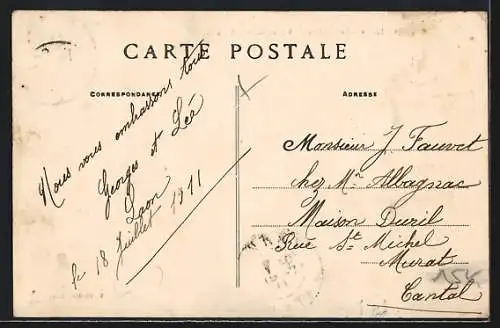 CARTE POSTALE
CORRESPONDANCE
ADRESSE
Nous vous embrassons tous
Georges et Léa
Laon
le 18 Juillet 1911
Monsieur J. Fauvet
chez Mr Albagnac
Maison Duril
Rue St Michel
Murat
Cantal
154